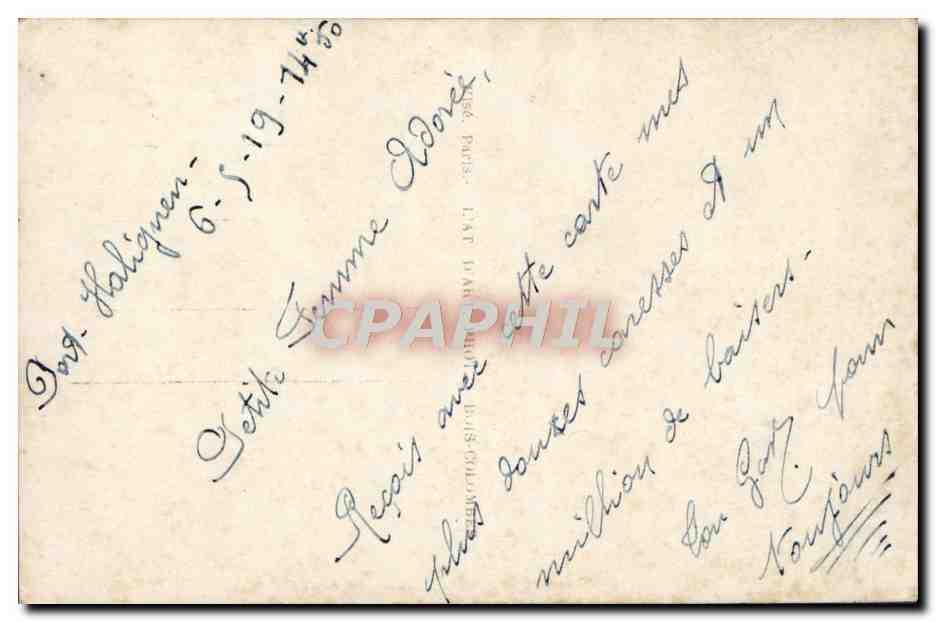 Port-Haliguen-
6-5-19-14h50
Petite Femme Adorée,
Reçois avec cette carte mes
plus douces caresses et un
million de baisers.-
Ton pour
toujours
Visé. Paris.- L'AT D'AR BOIS-COLOMBES
CPAPHIL